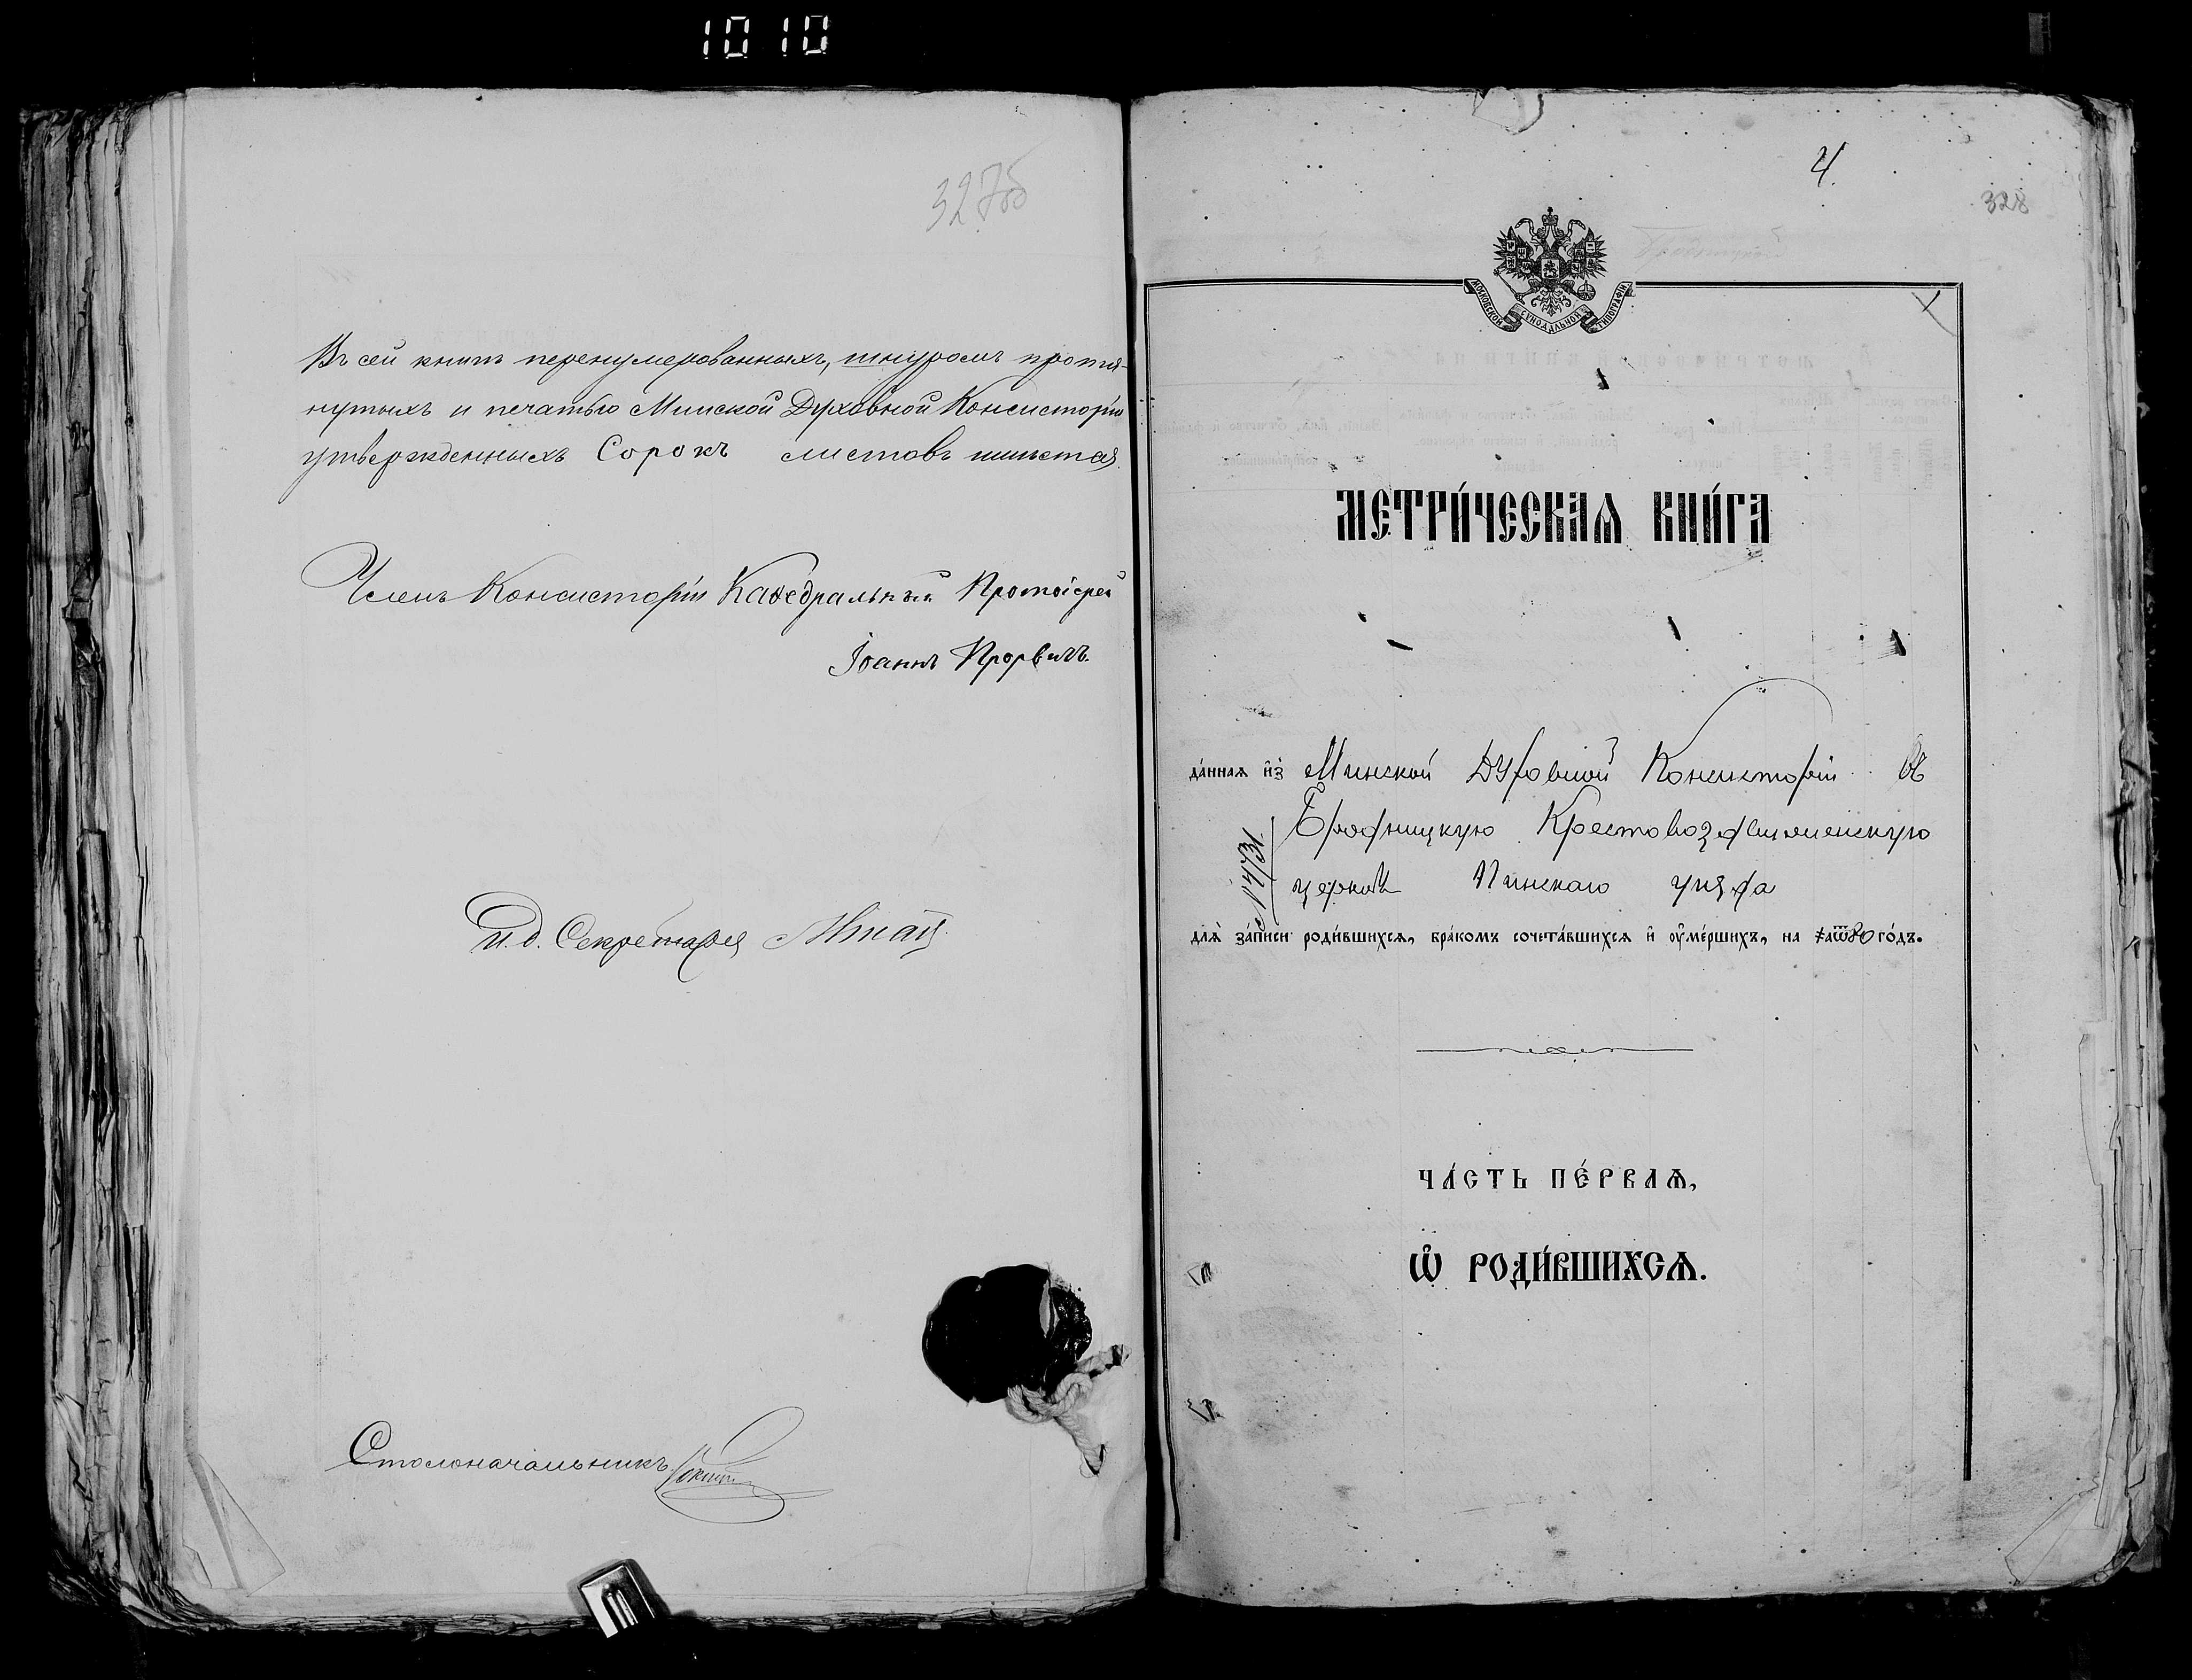 1010
327об
Въ сей книгѣ перенумерованныхъ, шнуромъ протя-
нутыхъ и печатью Минской Духовной Консисторіи
утвержденныхъ Сорокъ листовъ
Членъ Консисторіи Каѳедральный Протоіерей
Іоаннъ Прорвичъ.
И. д. Секретаря
Столоначальникъ
4.
328
МОСКОВСКОЙ СѴНОДАЛЬНОЙ ТИПОГРАФІИ
МЕТРИ́ЧЕСКАѦ КНИ́ГА
да́нная и҆з̾ Минской Духовной Консисторіи въ
Бродницкую Крестовоздвиженскую
церковь Пинскаго уѣзда
№ 14731.
длѧ̀ за́писи роди́вшихсѧ, бра́комъ сочета́вшихсѧ и҆ ᲂу҆ме́ршихъ, на го́дъ.
ЧА́СТЬ ПЕ́РВАѦ,
Ѡ҆ РОДИ́ВШИХСѦ.